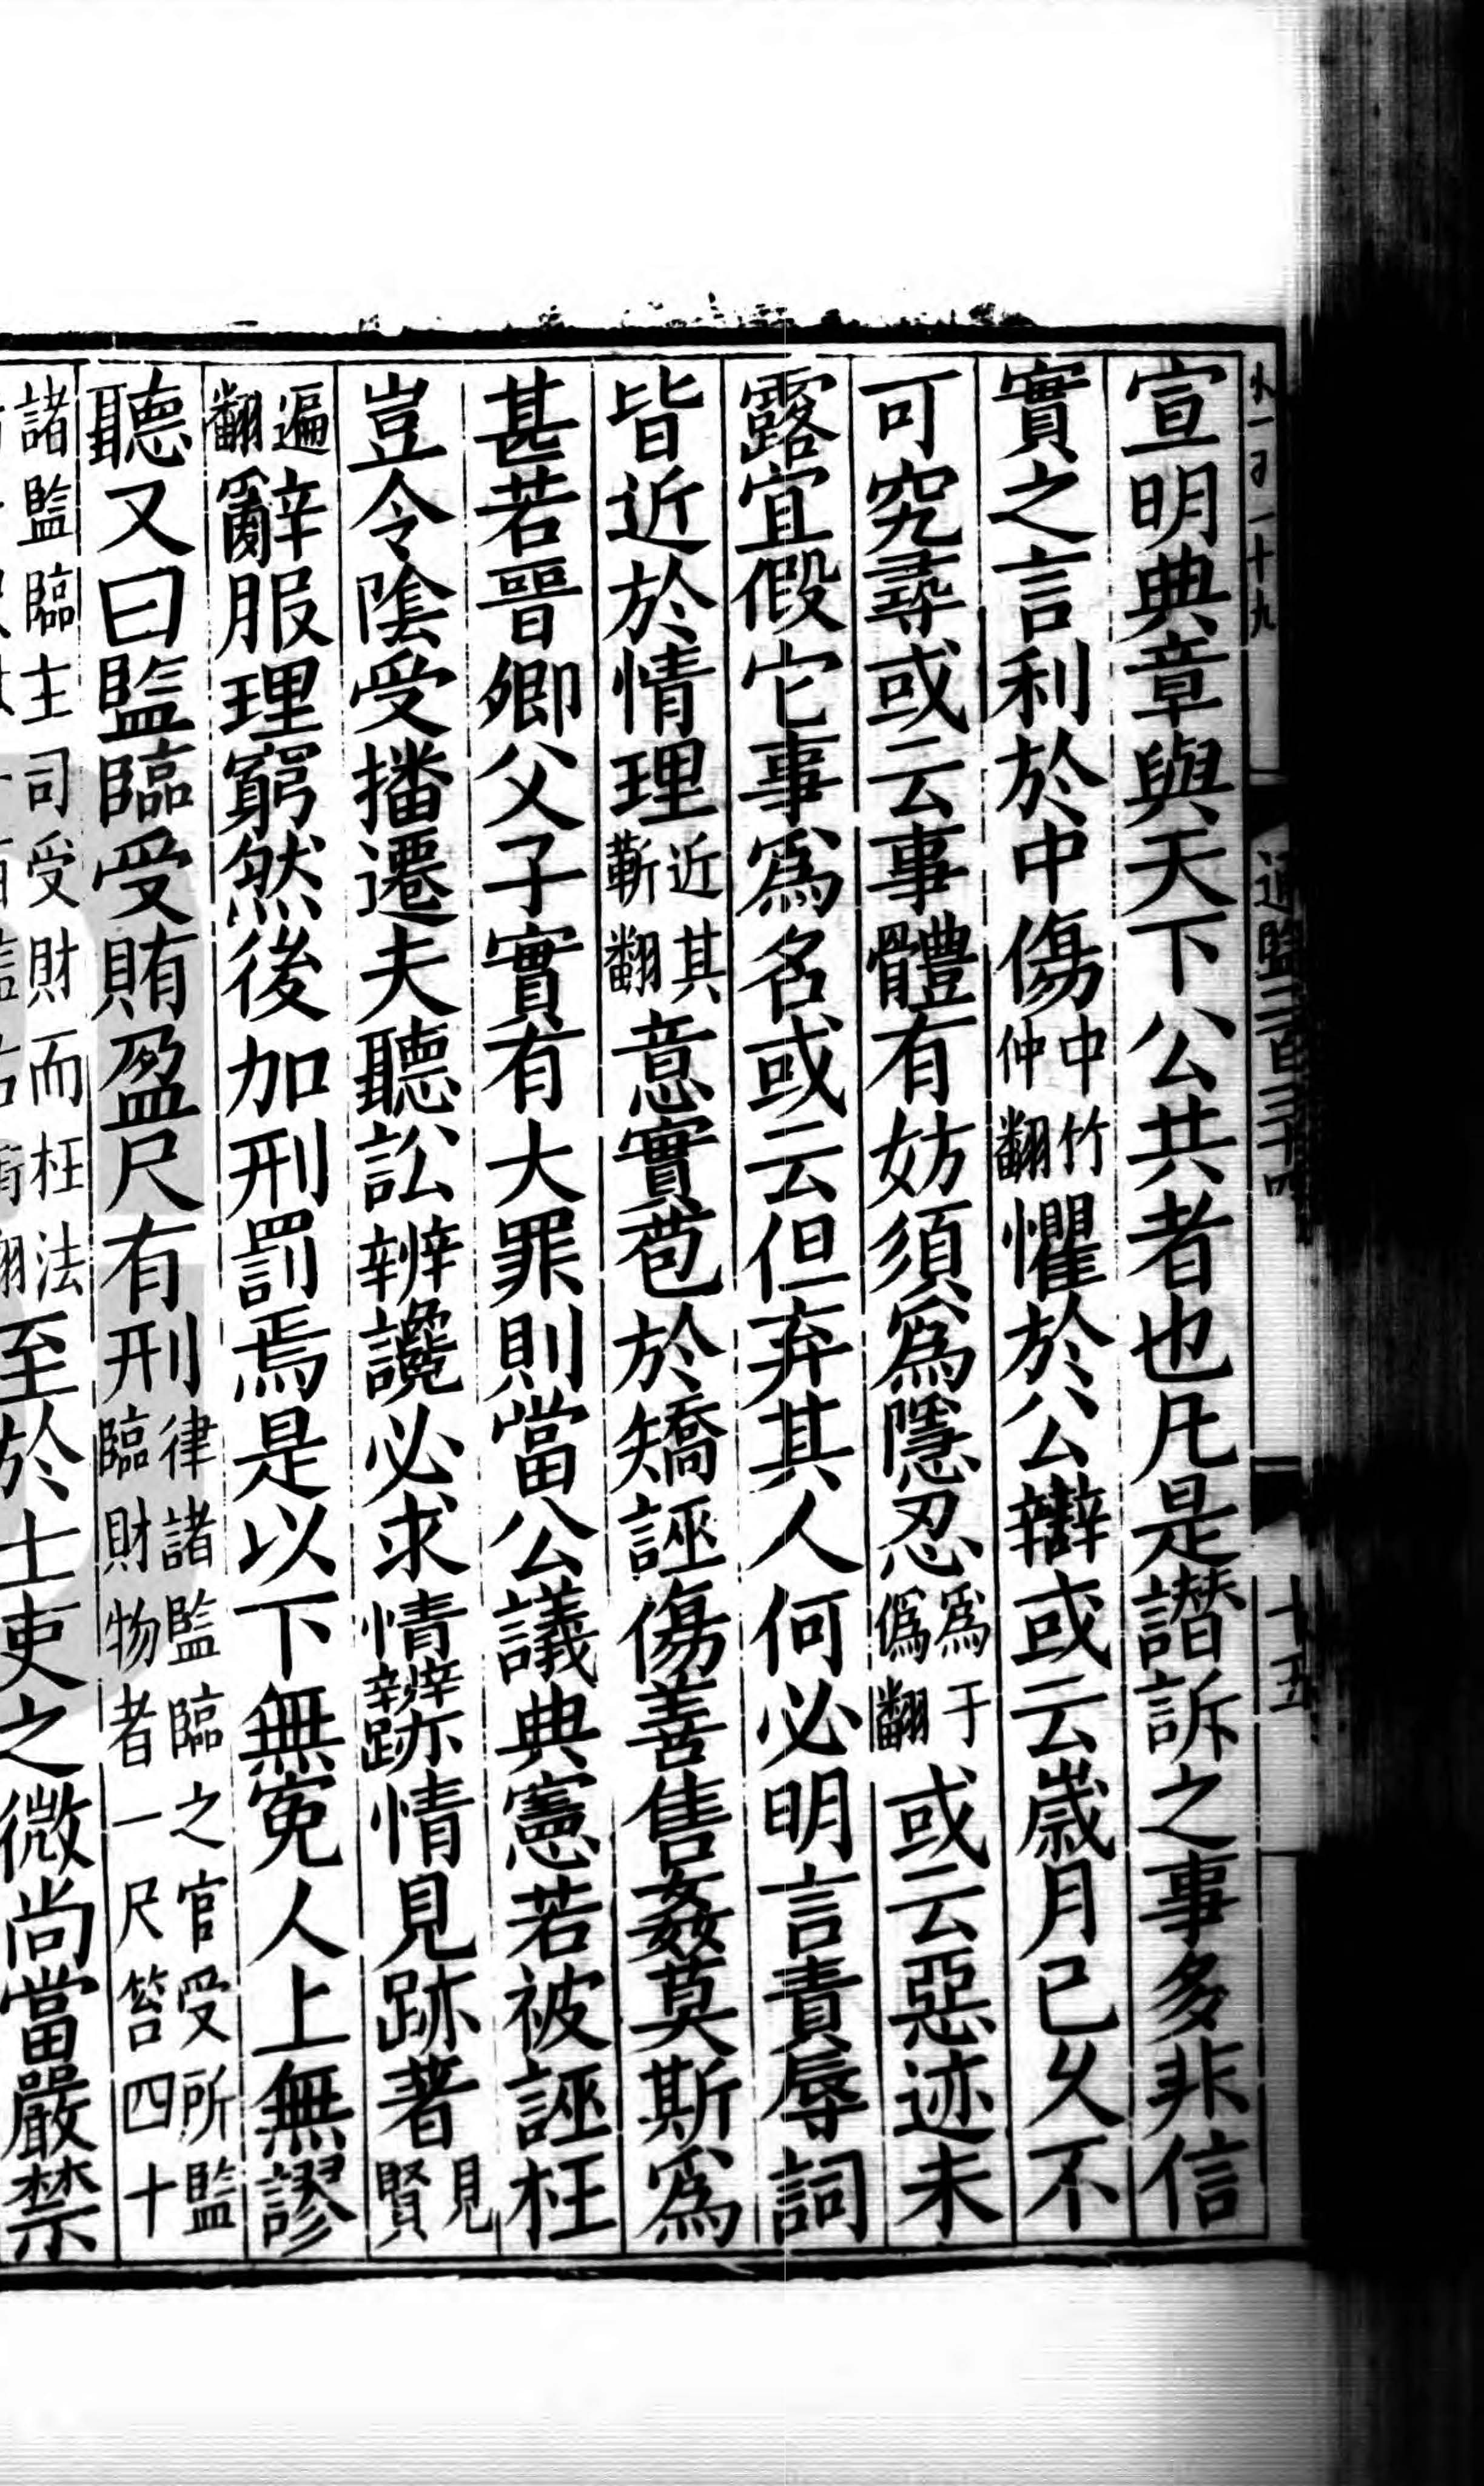 通鑑二百三十四
十五
宣明典章與天下公共者也凡是譖訴之事多非信
實之言利於中傷中竹仲翻懼於公辯或云歲月已久不
可究尋或云事體有妨須爲隱忍爲于僞翻或云惡迹未
露宜假它事爲名或云但弃其人何必明言責辱詞
皆近於情理近其靳翻意實苞於矯誣傷善售姦莫斯爲
甚若晉卿父子實有大罪則當公議典憲若被誣枉
豈令陰受播遷夫聽訟辨讒必求情辨跡情見跡著見賢
遍翻辭服理窮然後加刑罰焉是以下無冤人上無謬
聽又曰監臨受賄盈尺有刑律諸監臨之官受所監臨財物者一尺笞四十
諸監臨主司受財而枉法至於士吏之微尚當嚴禁